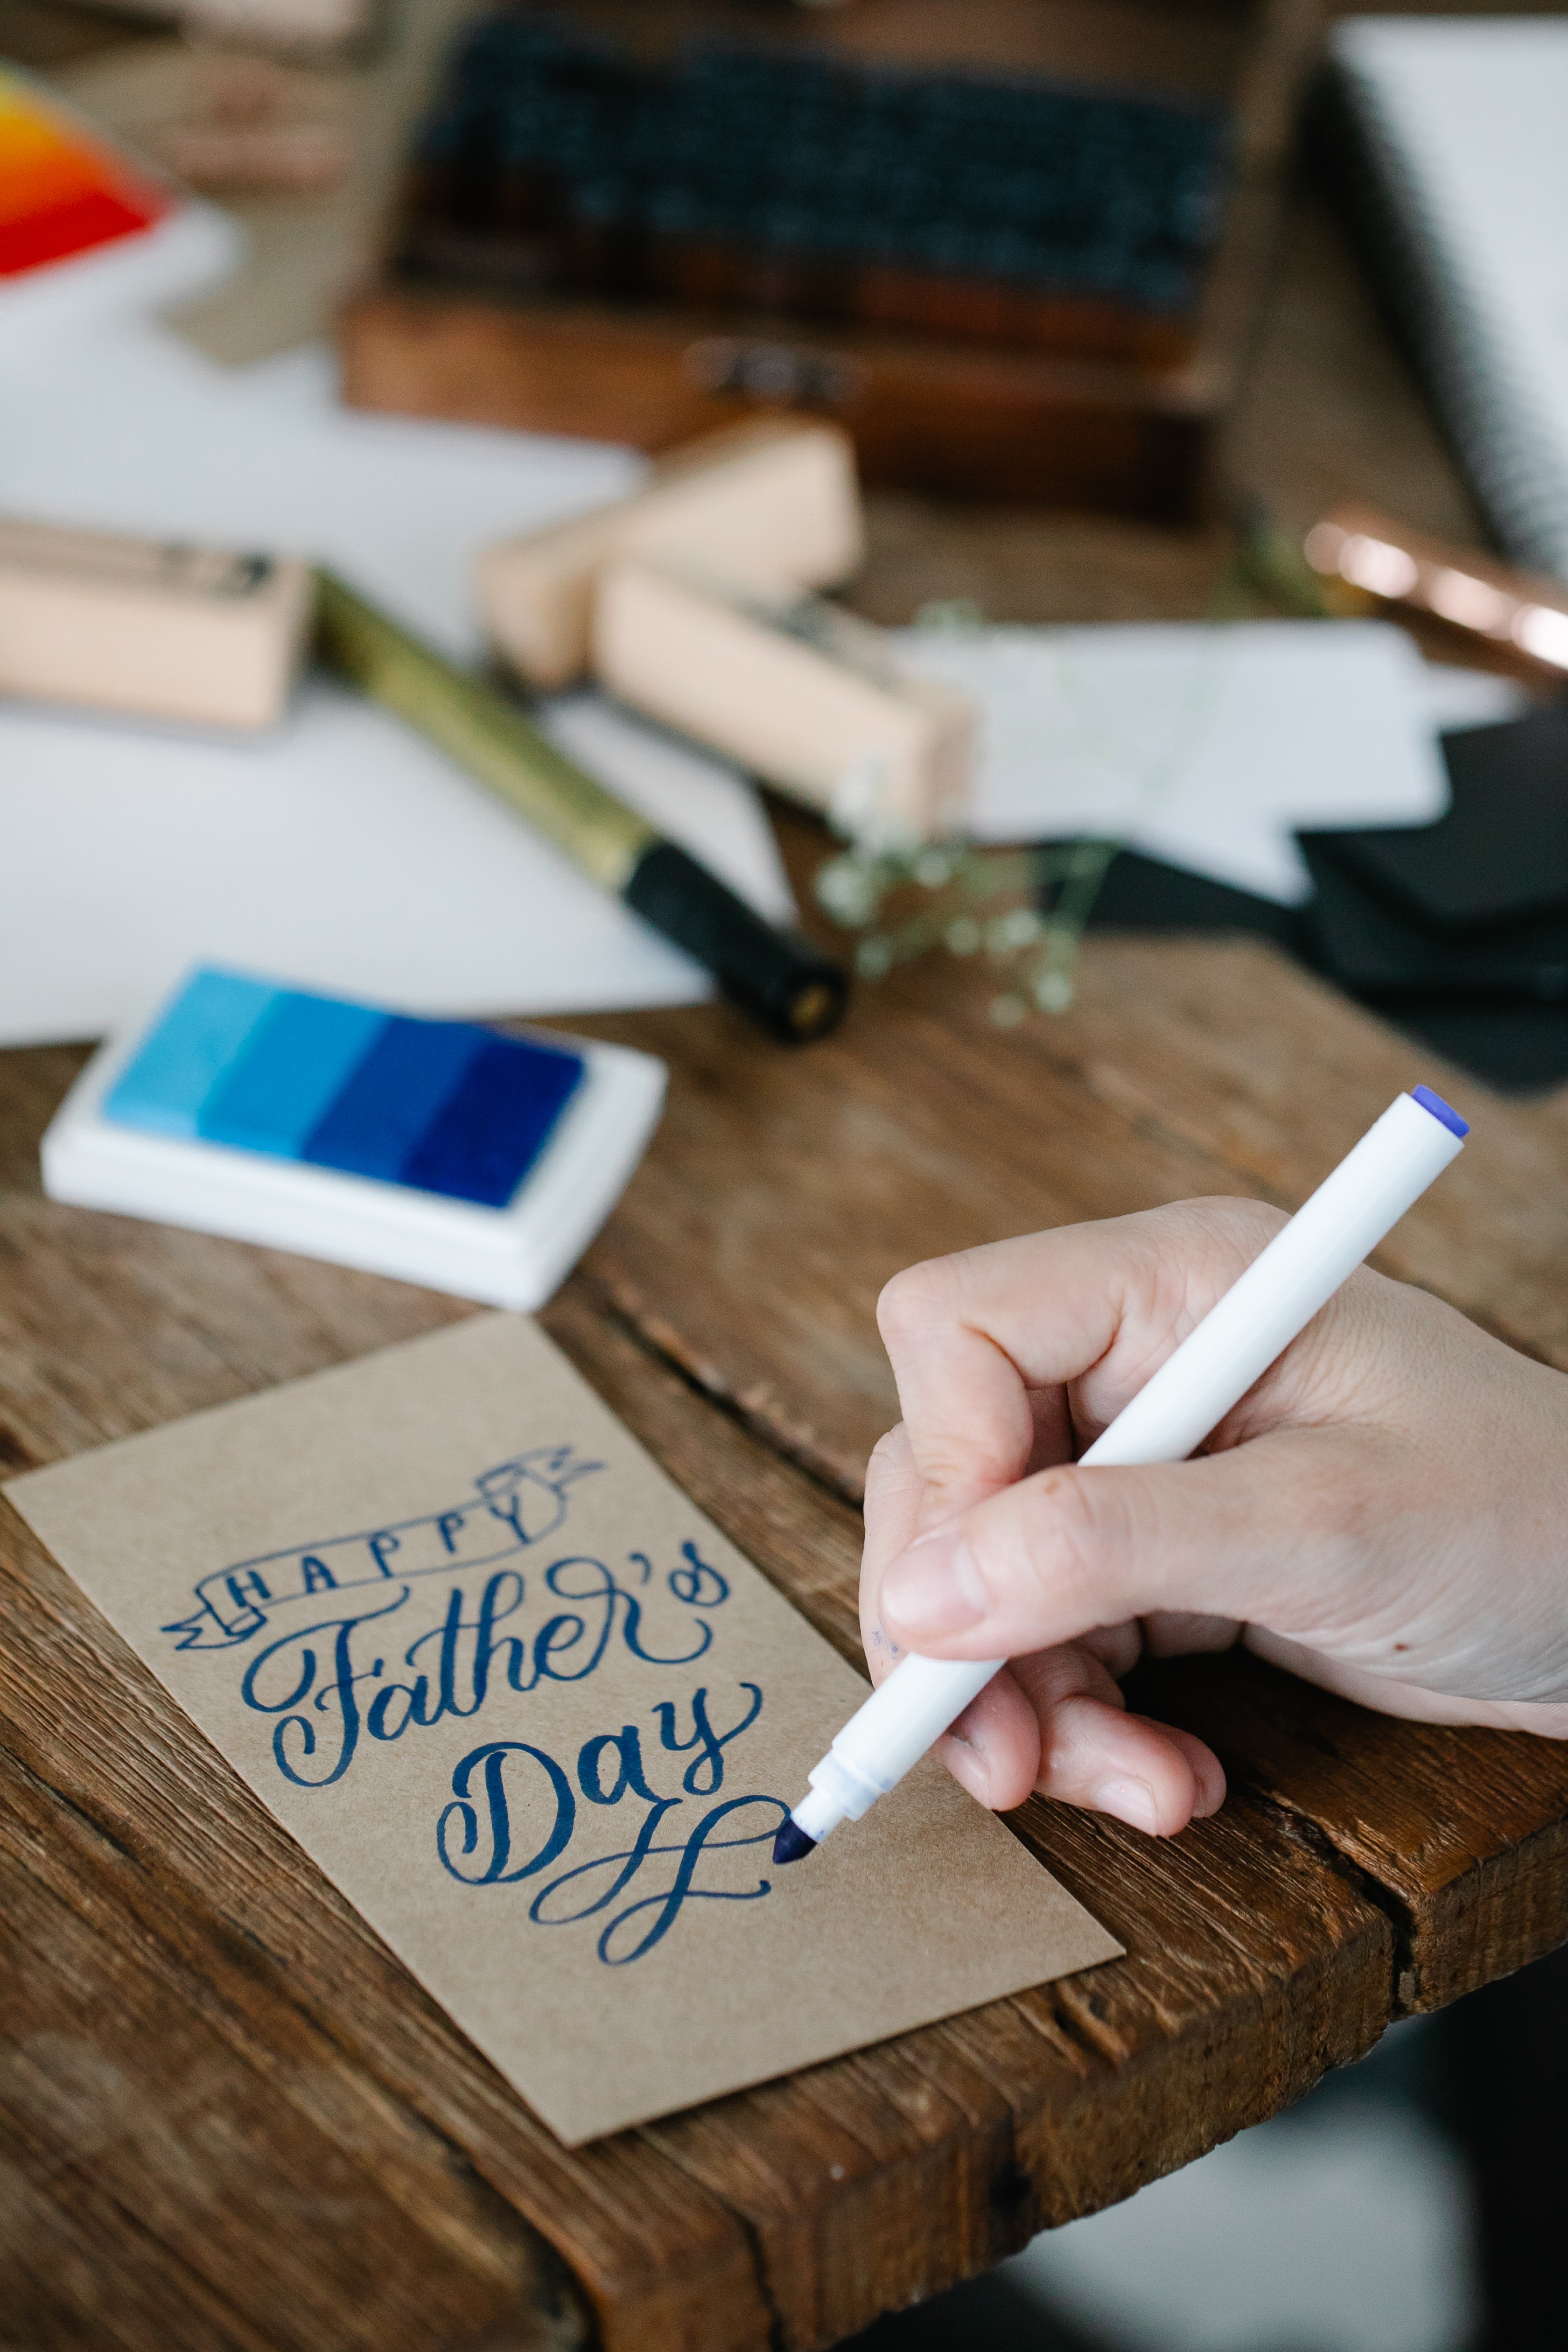 HAPPY
Father's
Day